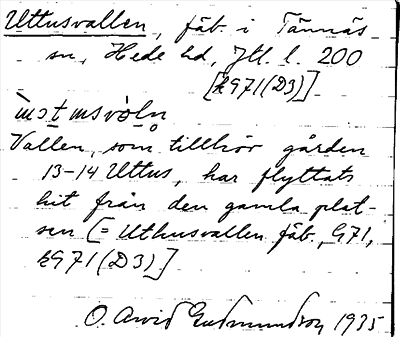 Uttusvallen, fäb. i Tännäs
sn, Hede hd, Jtl. l. 200
[k971(D3)]
Vallen, som tillhör gården
13-14 Uttus, har flyttats
hit från den gamla plat-
sen [= Uthusvallen fäb., G71,
k971(D3)]
O. Arvid Gudmundson 1935